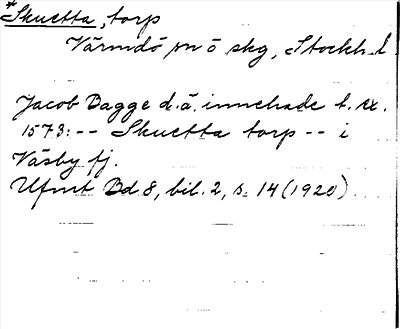 *Skuetta, torp
Värmdö sn ö skg, Stockh. l.
Jacob Bagge d.ä. innehade t. ex.
1573: -- Skuetta torp -- i
Väsby fj.
Ufmt Bd. 8, bil. 2, s. 14 (1920)